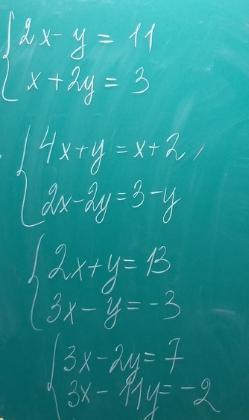 2x-y=11
x+2y=3
4x+y=x+2,
2x-2y=3-y
2x+y=13
3x-y=-3
3x-2y=7
3x-11y=-2